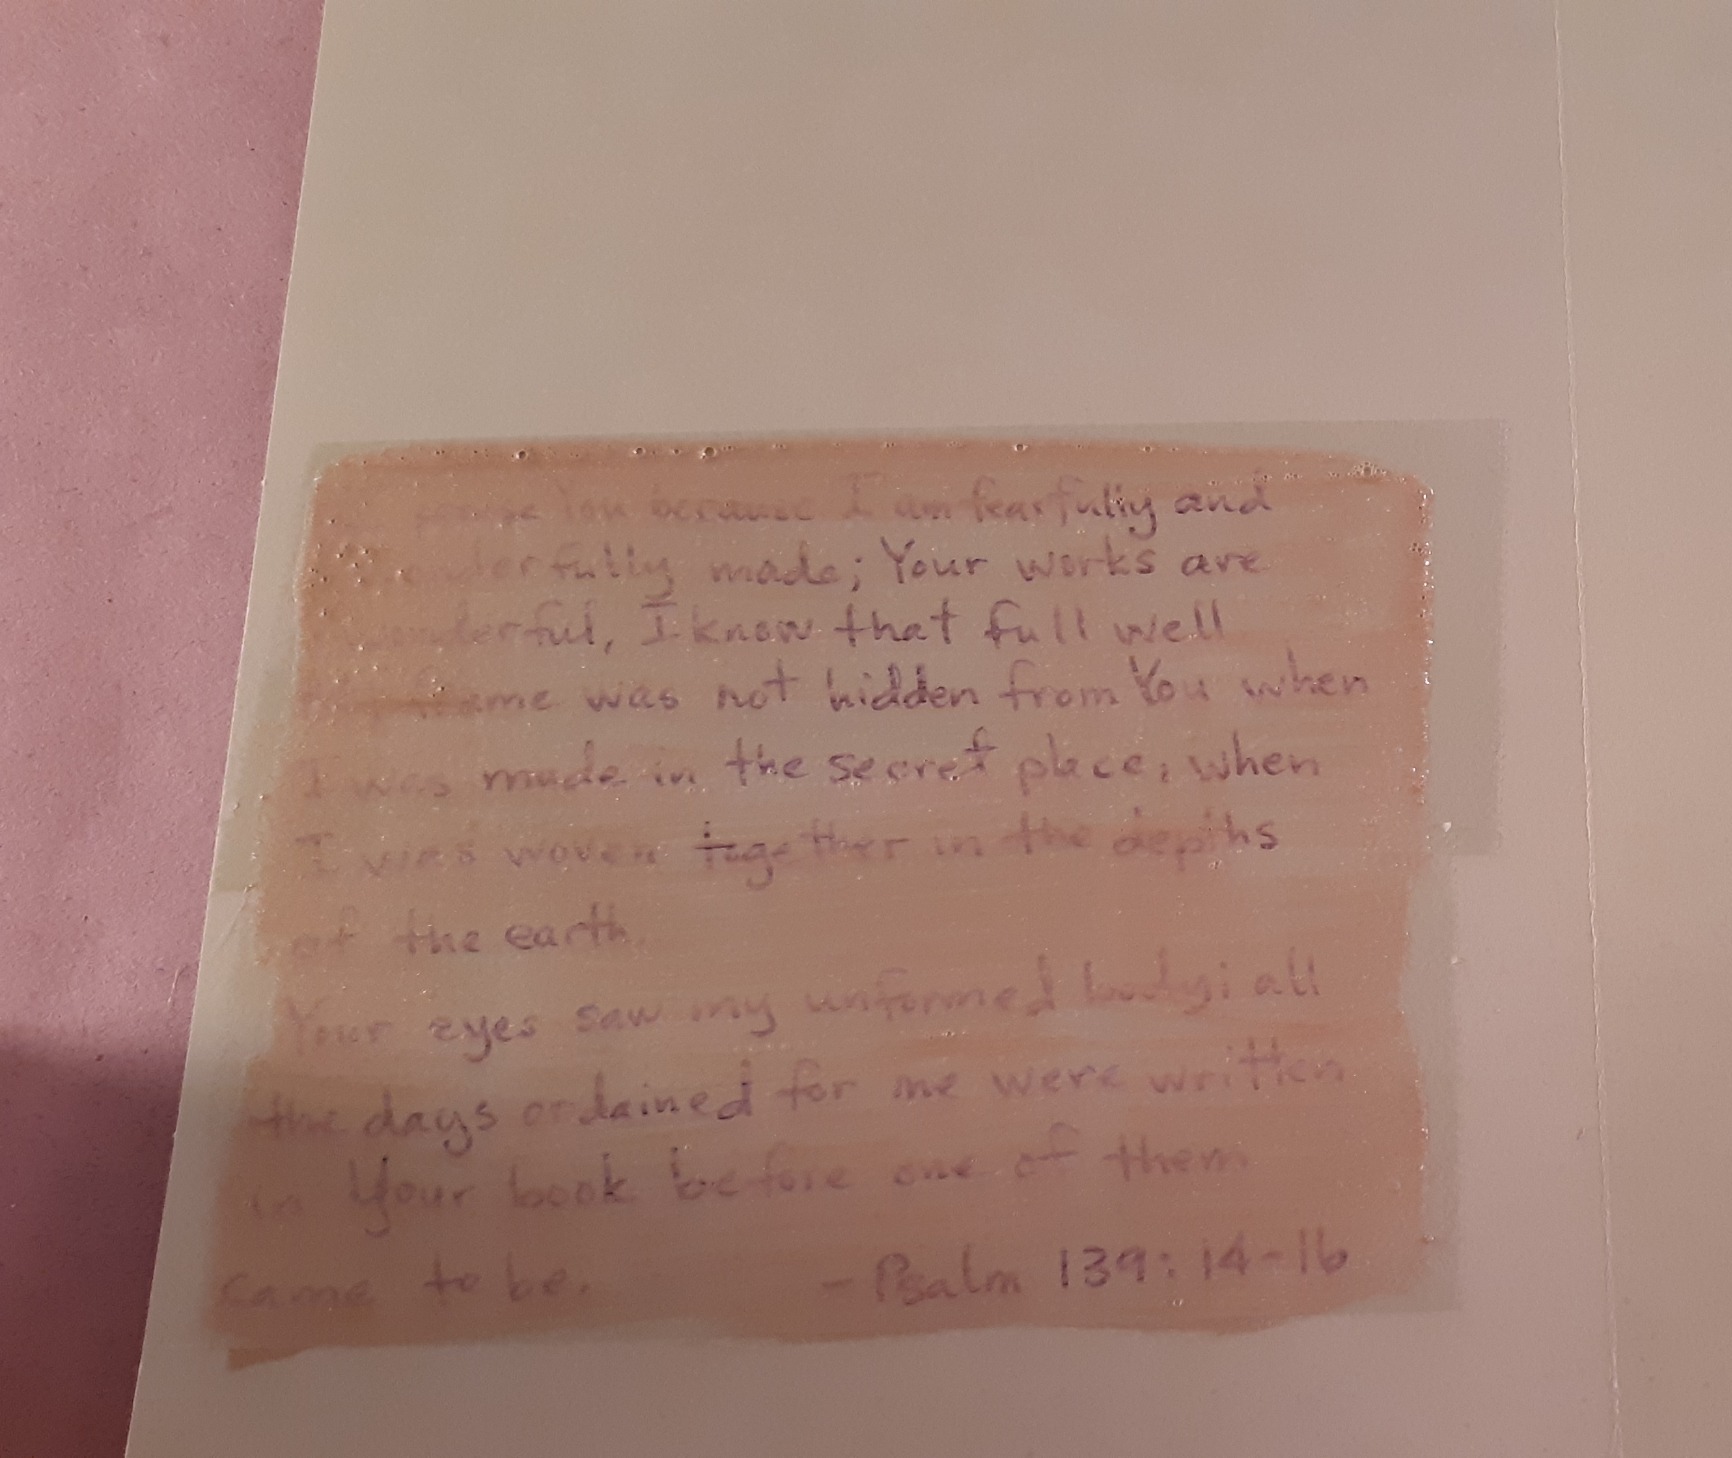 praise You because I am fearfully and
wonderfully made; Your works are
wonderful, I know that full well
frame was not hidden from You when
I was made in the secret place, when
I was woven together in the depths
of the earth.
Your eyes saw my unformed body; all
the days ordained for me were written
in Your book before one of them
came to be. - Psalm 139:14-16